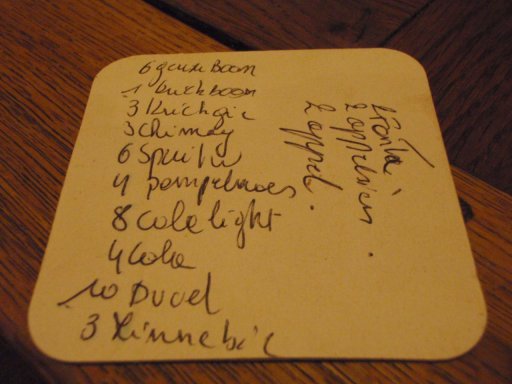 6 geuze Boon
1 kriekboon
3 Kriek gir
3 chimay
6 Spuitw
4 pompelmoes
8 cola light
4 Cola
10 Duvel
3 Zinnebir
1 Fanta
2 appelsien.
2 appel.